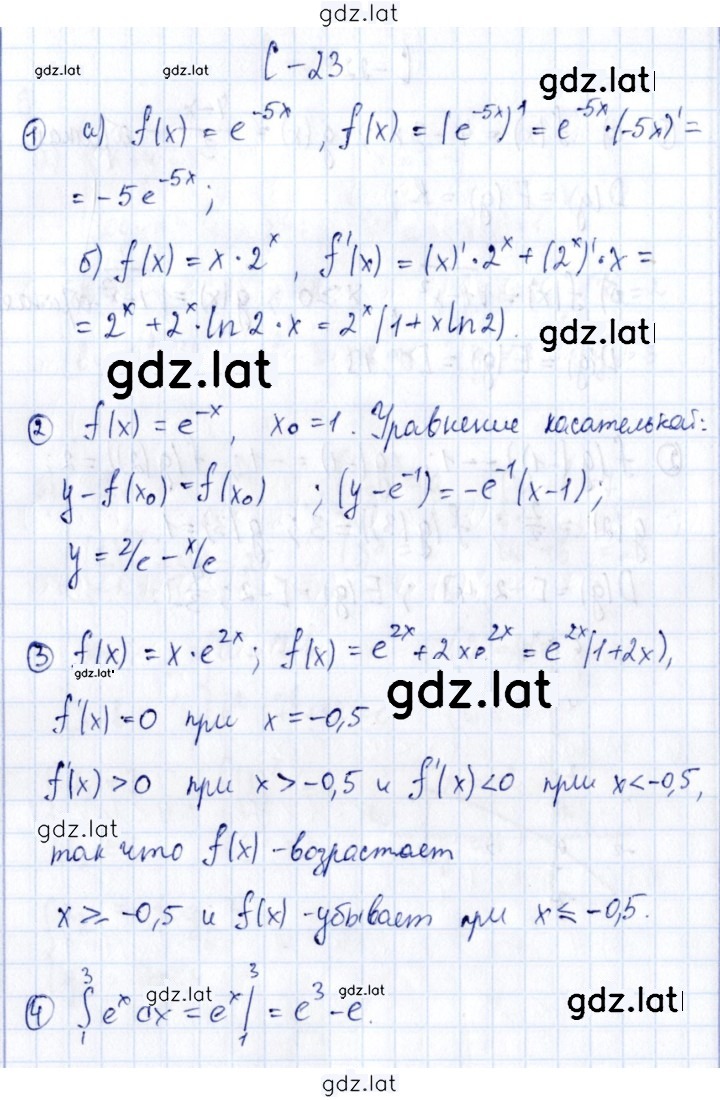 gdz.lat
С-23
gdz.lat gdz.lat gdz.lat
① а) f(x) = e^{-5x}, f(x) = (e^{-5x})' = e^{-5x}·(-5x)' =
= -5e^{-5x};
б) f(x) = x·2^x, f'(x) = (x)'·2^x + (2^x)'·x =
= 2^x + 2^x·ln2·x = 2^x(1+xln2).
gdz.lat
gdz.lat
② f(x) = e^{-x}, x₀=1. Уравнение касательной:
y-f(x₀) = f(x₀) ; (y-e^{-1}) = -e^{-1}(x-1);
y = 2/e - x/e
③ f(x) = x·e^{2x}; f(x) = e^{2x}+2xe^{2x} = e^{2x}(1+2x),
gdz.lat
gdz.lat
f'(x)=0 при x=-0,5
f'(x)>0 при x>-0,5 и f'(x)<0 при x<-0,5,
gdz.lat
так что f(x)-возрастает
x ≥ -0,5 и f(x)-убывает при x ≤ -0,5.
④ ∫₁³ e^x dx = e^x|₁³ = e³-e.
gdz.lat gdz.lat gdz.lat
gdz.lat